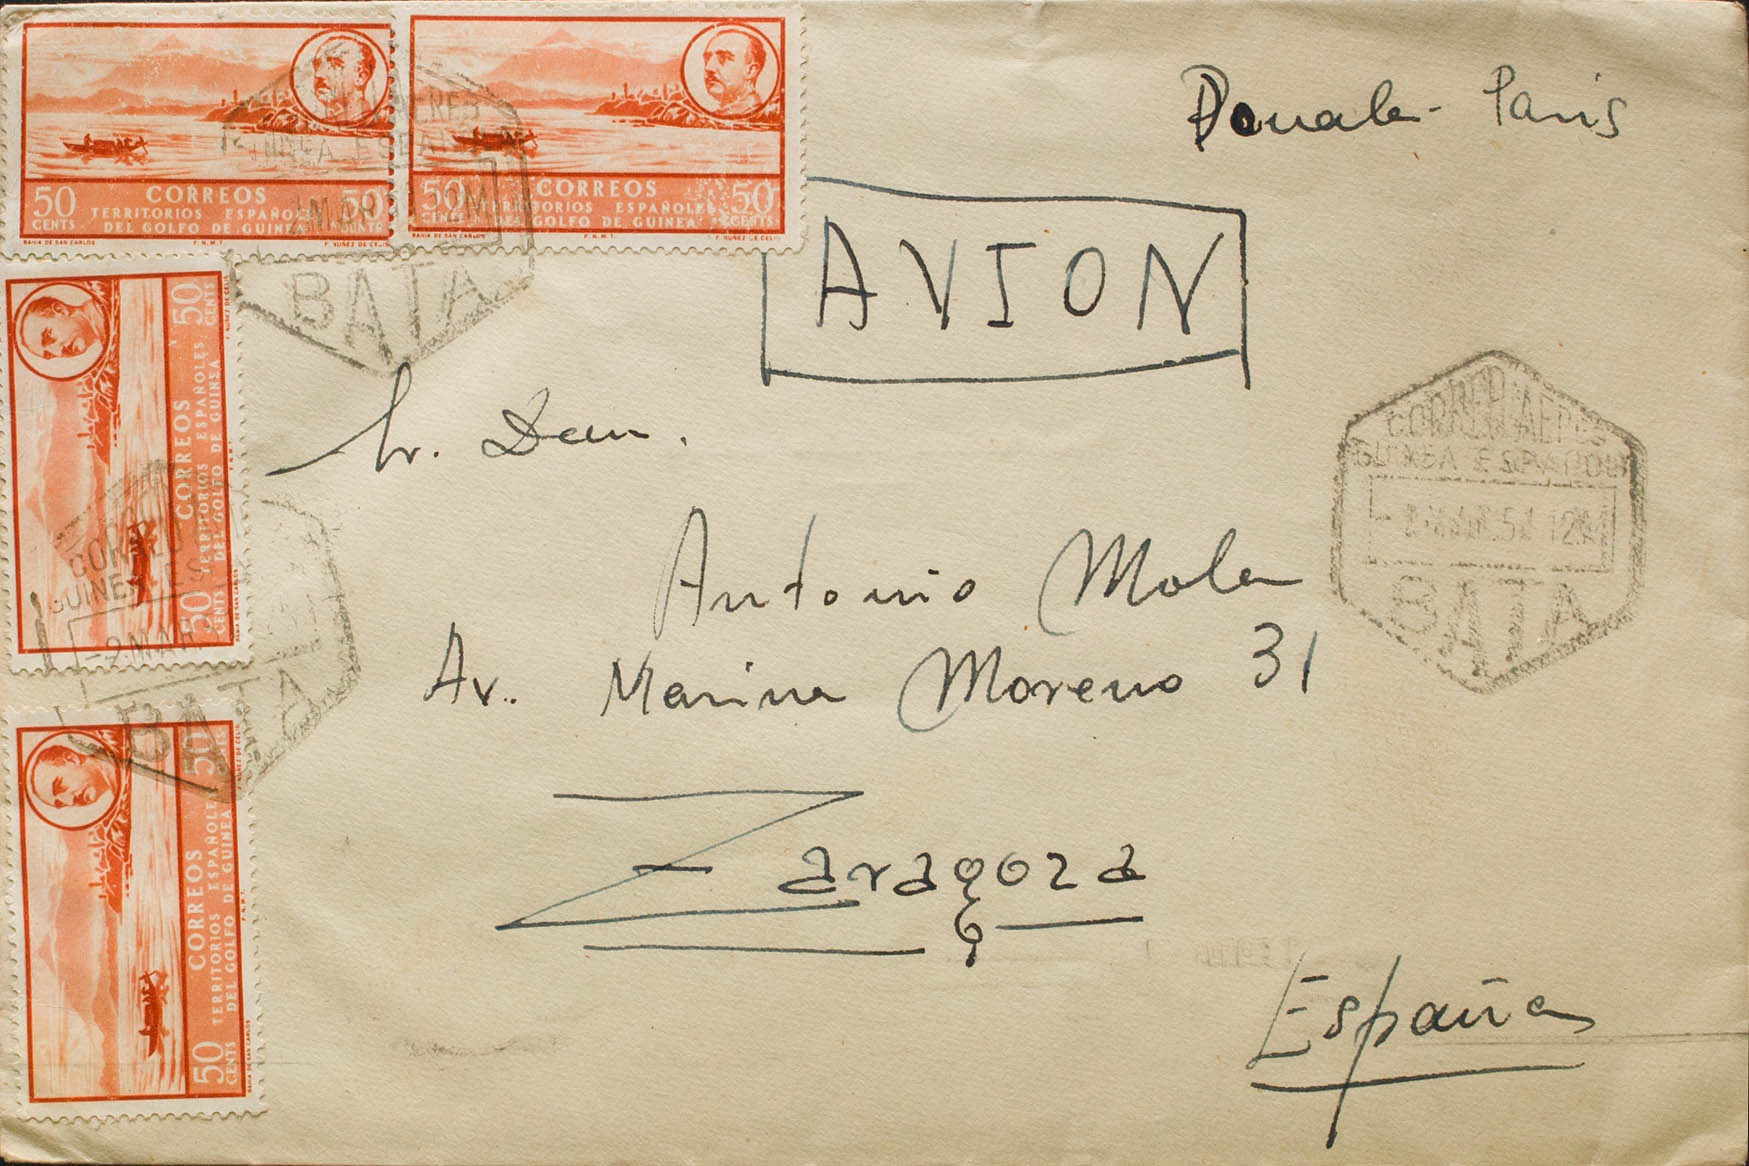 50 CENTS
CORREOS
TERRITORIOS ESPAÑOLES
DEL GOLFO DE GUINEA
50
BAHIA DE SAN CARLOS F.N.M.T. F. NUÑEZ DE CELIS
50 CENTS
CORREOS
TERRITORIOS ESPAÑOLES
DEL GOLFO DE GUINEA
50 CENTS
BAHIA DE SAN CARLOS F.N.M.T. F. NUÑEZ DE CELIS
BATA
Douala - Paris
AVION
Sr. Don.
Antonio Mola
Av. Marina Moreno 31
Zaragoza
España
CORREO AEREO
GUINEA ESPAÑOLA
BATA
50 CENTS
CORREOS
TERRITORIOS ESPAÑOLES
DEL GOLFO DE GUINEA
50 CENTS
BAHIA DE SAN CARLOS F.N.M.T. F. NUÑEZ DE CELIS
CORREO
GUINEA ES
-2 MAR
BATA
50 CENTS
CORREOS
TERRITORIOS ESPAÑOLES
DEL GOLFO DE GUINEA
50 CENTS
BAHIA DE SAN CARLOS F.N.M.T. F. NUÑEZ DE CELIS